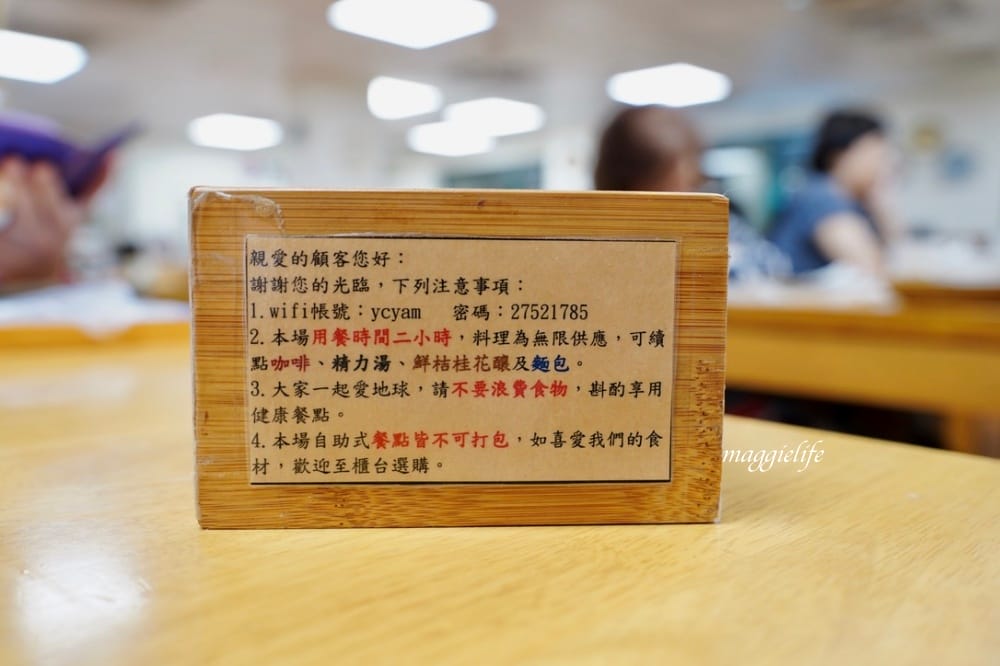 親愛的顧客您好：
謝謝您的光臨，下列注意事項：
1.wifi帳號：ycyam 密碼：27521785
2.本場用餐時間二小時，料理為無限供應，可續
點咖啡、精力湯、鮮桔桂花釀及麵包。
3.大家一起愛地球，請不要浪費食物，斟酌享用
健康餐點。
4.本場自助式餐點皆不可打包，如喜愛我們的食
材，歡迎至櫃台選購。
maggielife